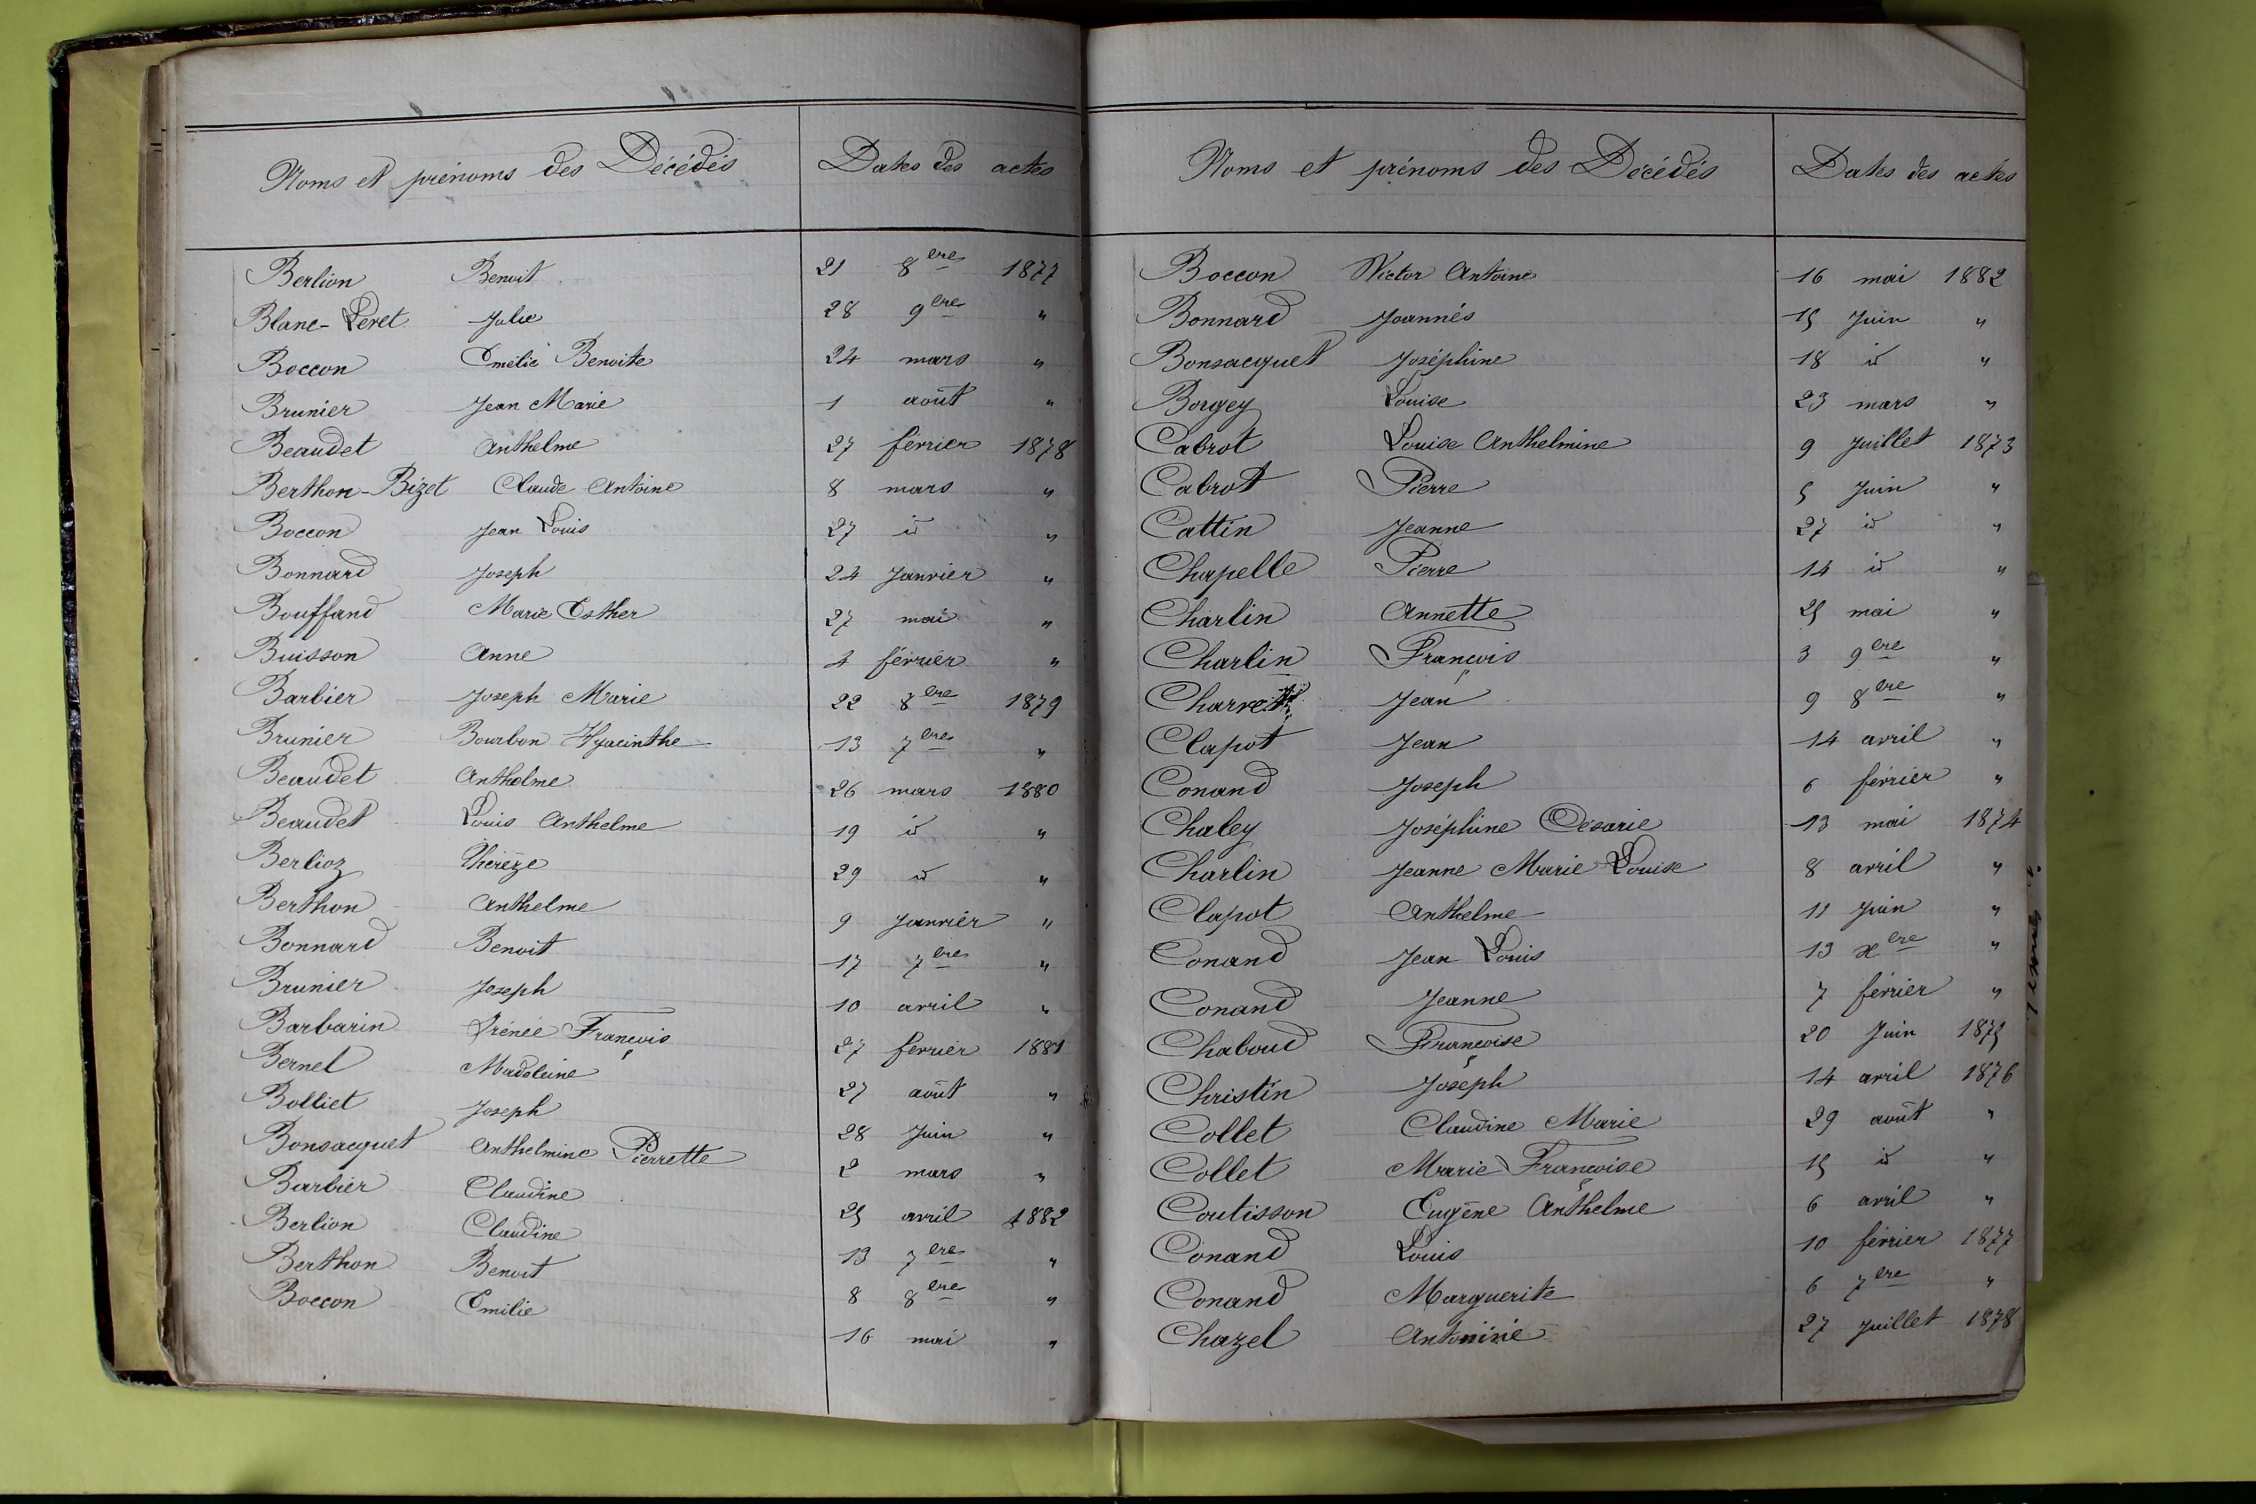 Noms et prénoms des Décédés Dates des actes
Berlion Benoit 21 8bre 1877
Blanc-Peret Julie 28 9bre "
Boccon Emélie Benoite 24 mars "
Brunier Jean Marie 1 août "
Beaudet Anthelme 27 février 1878
Berthon-Bizet Claude Antoine 8 mars "
Boccon Jean Louis 27 id "
Bonnard Joseph 24 Janvier "
Bouffand Marie Esther 27 mai "
Buisson Anne 4 février "
Barbier Joseph Marie 22 8bre 1879
Brunier Bourbon Hyacinthe 13 7bre "
Beaudet Anthelme 26 mars 1880
Beaudet Louis Anthelme 19 id "
Berlioz Thérèze 29 id "
Berthon Anthelme 9 Janvier "
Bonnard Benoit 17 7bre "
Brunier Joseph 10 avril "
Barbarin Irénée François 27 février 1881
Bernet Madeleine 27 août "
Bolliet Joseph 28 Juin "
Bonsacquet Anthelmine Pierrette 2 mars "
Barbier Claudine 25 avril 1882
Berlion Claudine 13 7bre "
Berthon Benoit 8 8bre "
Boccon Emilie 16 mai "
Noms et prénoms des Décédés Dates des actes
Boccon Victor Antoine 16 mai 1882
Bonnard Joannés 15 Juin "
Bonsacquet Joséphine 18 id "
Borgey Louise 23 mars "
Cabrot Louise Anthelmine 9 Juillet 1873
Cabrot Pierre 5 Juin "
Cattin Jeanne 27 id "
Chapelle Pierre 14 id "
Charlin Annette 25 mai "
Charlin François 3 9bre "
Charvet Jean 9 8bre "
Clapot Jean 14 avril "
Conand Joseph 6 février "
Chaley Joséphine Césarie 13 mai 1874
Charlin Jeanne Marie Louise 8 avril "
Clapot Anthelme 11 Juin "
Conand Jean Louis 13 xbre "
Conand Jeanne 7 février "
Chaboud Françoise 20 Juin 1875
Christin Joseph 14 avril 1876
Collet Claudine Marie 29 août "
Collet Marie Françoise 15 id "
Coutisson Eugène Anthelme 6 avril "
Conand Louis 10 février 1877
Conand Marguerite 6 7bre "
Chazel Antoinie 27 Juillet 1878